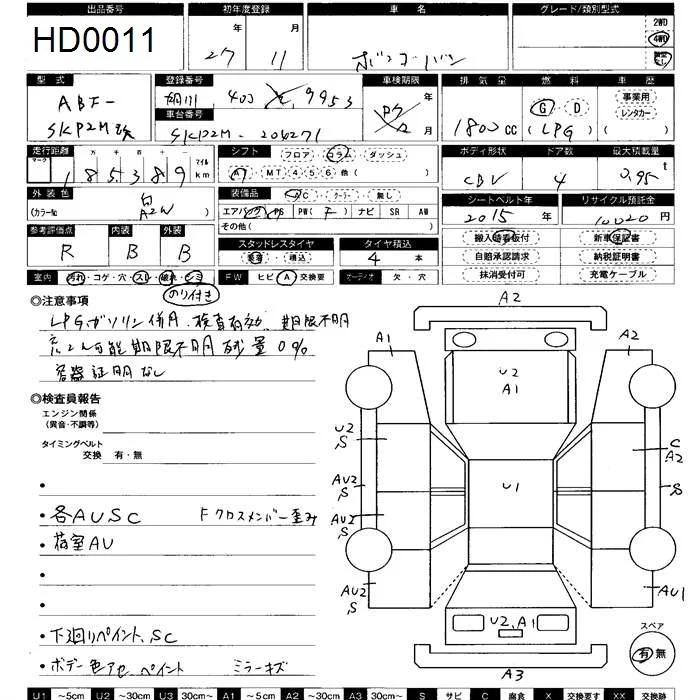 出品番号 初年度登録 車名 グレード/類別型式
HD0011 27年 11月 ボンゴーバン 2WD 4WD
型式 登録番号 車検期限 排気量 燃料 車歴
ABF- 403 を 9953 年 事業用
車台番号 G D レンタカー
SKP2M 改 SKP2M-204271 月 1800cc (LPG)
走行距離 シフト ボディ形状 ドア数 最大積載量
マーク 十 万 千 百 十 一 マイル フロア コラム ダッシュ
185389 km AT MT 4 5 6 他( ) CBV 4 0.95 t
外装色 装備品 AC クーラー 無し シートベルト年 リサイクル預託金
白 エアバック PS PW( ) ナビ SR AW 2015年 10020円
(カラーNo A2W) その他( )
参考評価点 内装 外装 搬入時看板付 新車保証書
R B B スタッドレスタイヤ タイヤ積込 自賠承認請求 納税証明書
装着・積込 4本 抹消受付可 充電ケーブル
室内 汚れ・コゲ・穴・スレ・破れ・シミ FW ヒビ A 交換要 オーディオ 欠・穴
のり付き
◎注意事項
LPGガソリン併用、検査有効、期限不明
充てん可能期限不明 残量0%
容器証明なし
◎検査員報告
エンジン関係
(異音・不調等)
タイミングベルト
交換 有・無
・
・各AUSC Fクロスメンバー歪み
・荷室AU
・
・
・下廻りペイント、SC
・ボデー色アセ、ペイント ミラーキズ
A2
A1 A2
U2
A1
U2
S
C
A2
AU2
S
U1
S
AU2
S
AU2
S
AU1
U2,A1
スペア
有 無
A3
U1 ~5cm U2 ~30cm U3 30cm~ A1 ~5cm A2 ~30cm A3 30cm~ S サビ C 腐食 X 交換要す XX 交換跡